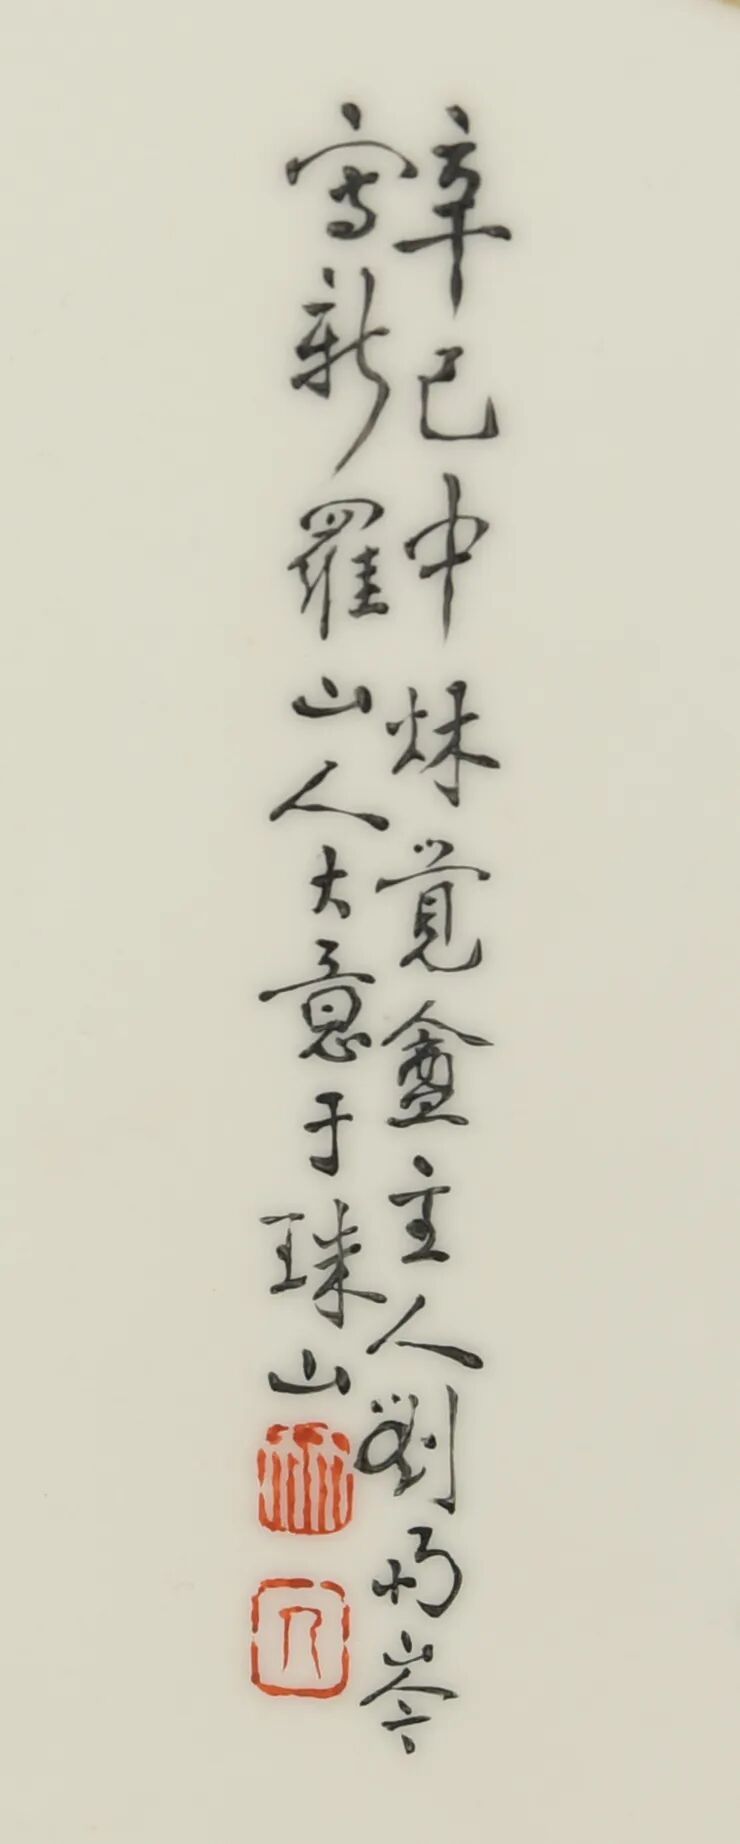 辛巳中秌觉盦主人劉雨岑
写新羅山人大意于珠山
人